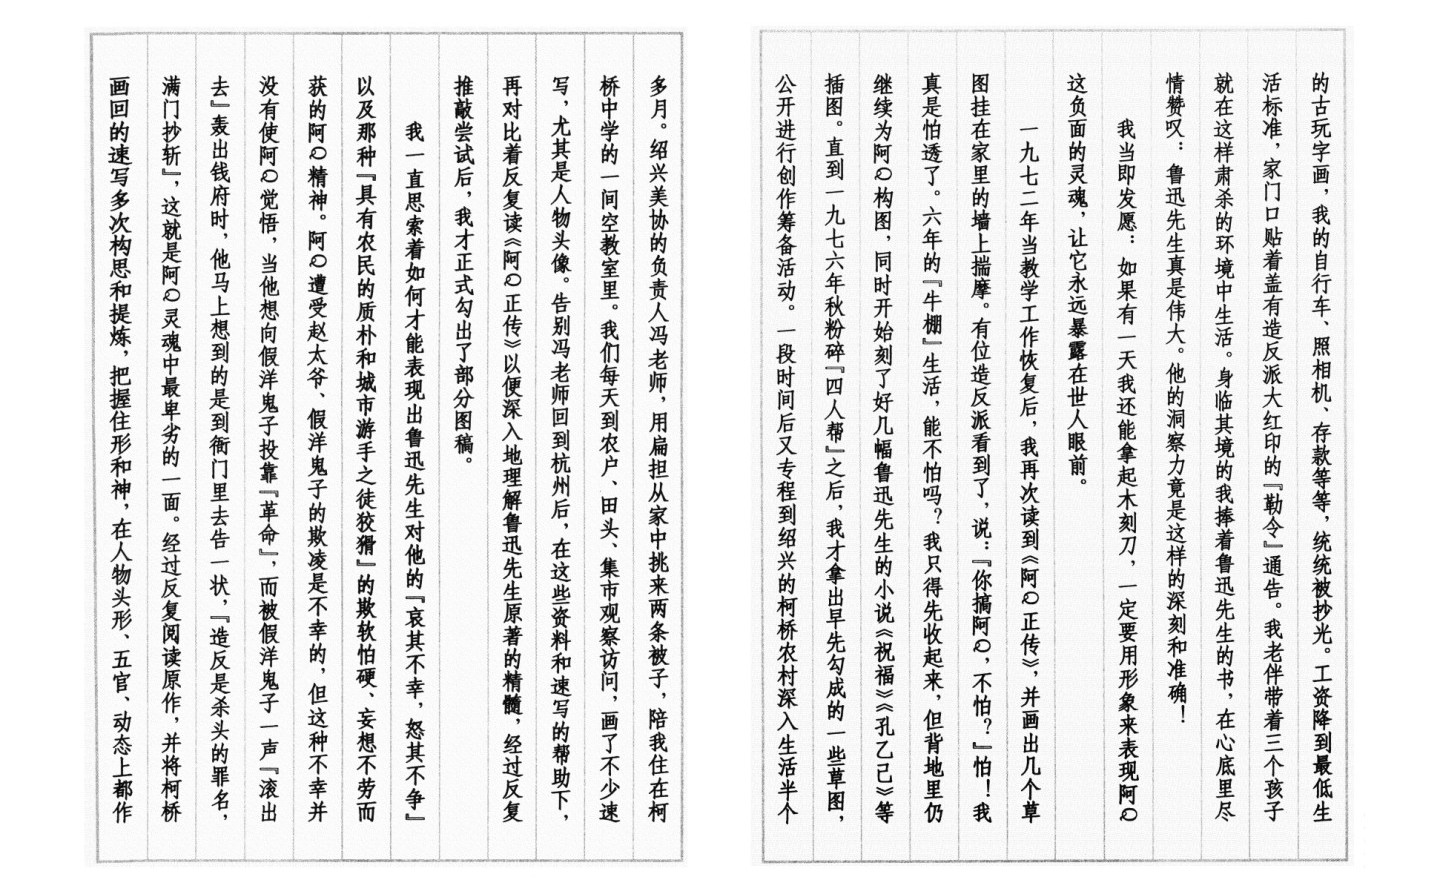 的古玩字画，我的自行车、照相机、存款等等，统统被抄光。工资降到最低生
活标准，家门口贴着盖有造反派大红印的『勒令』通告。我老伴带着三个孩子
就在这样肃杀的环境中生活。身临其境的我捧着鲁迅先生的书，在心底里尽
情赞叹：鲁迅先生真是伟大。他的洞察力竟是这样的深刻和准确！
我当即发愿：如果有一天我还能拿起木刻刀，一定要用形象来表现阿Q
这负面的灵魂，让它永远暴露在世人眼前。
一九七二年当教学工作恢复后，我再次读到《阿Q正传》，并画出几个草
图挂在家里的墙上揣摩。有位造反派看到了，说：『你搞阿Q，不怕？』怕！我
真是怕透了。六年的『牛棚』生活，能不怕吗？我只得先收起来，但背地里仍
继续为阿Q构图，同时开始刻了好几幅鲁迅先生的小说《祝福》《孔乙己》等
插图。直到一九七六年秋粉碎『四人帮』之后，我才拿出早先勾成的一些草图，
公开进行创作筹备活动。一段时间后又专程到绍兴的柯桥农村深入生活半个
多月。绍兴美协的负责人冯老师，用扁担从家中挑来两条被子，陪我住在柯
桥中学的一间空教室里。我们每天到农户、田头、集市观察访问，画了不少速
写，尤其是人物头像。告别冯老师回到杭州后，在这些资料和速写的帮助下，
再对比着反复读《阿Q正传》以便深入地理解鲁迅先生原著的精髓，经过反复
推敲尝试后，我才正式勾出了部分图稿。
我一直思索着如何才能表现出鲁迅先生对他的『哀其不幸，怒其不争』
以及那种『具有农民的质朴和城市游手之徒狡猾』的欺软怕硬、妄想不劳而
获的阿Q精神。阿Q遭受赵太爷、假洋鬼子的欺凌是不幸的，但这种不幸并
没有使阿Q觉悟，当他想向假洋鬼子投靠『革命』，而被假洋鬼子一声『滚出
去』轰出钱府时，他马上想到的是到衙门里去告一状，『造反是杀头的罪名，
满门抄斩』，这就是阿Q灵魂中最卑劣的一面。经过反复阅读原作，并将柯桥
画回的速写多次构思和提炼，把握住形和神，在人物头形、五官、动态上都作